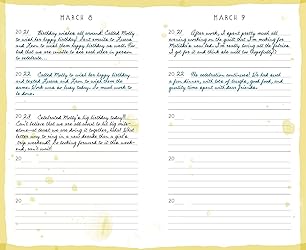 MARCH 8
20 21 Birthday wishes all around. Called Molly
to wish her happy birthday. Sent emails to
and to wish them happy birthday as well.
that we are unable to see each other in person
to celebrate...
20 22 Called Molly to wish her happy birthday
and texted and to wish them the
same. Work was so busy today. So much work to
be done.
20 23 Celebrated Molly's big birthday today!!
Can't believe that we are all about to hit big mile-
that we are doing it together, Yes! What
better way to ring in a new decade than a girl's
trip weekend! So looking forward to it this week-
end, can't wait!
20
20
MARCH 9
20 21 After work, I spent pretty much all
evening working on the quilt that I am making for
I'm really loving all the fabrics
I got for it and think she will too (hopefully)!
20 22 The celebration continues! We had such
a fun dinner, with lots of laughs, good food, and
quality time spent with dear friends.
20
20
20